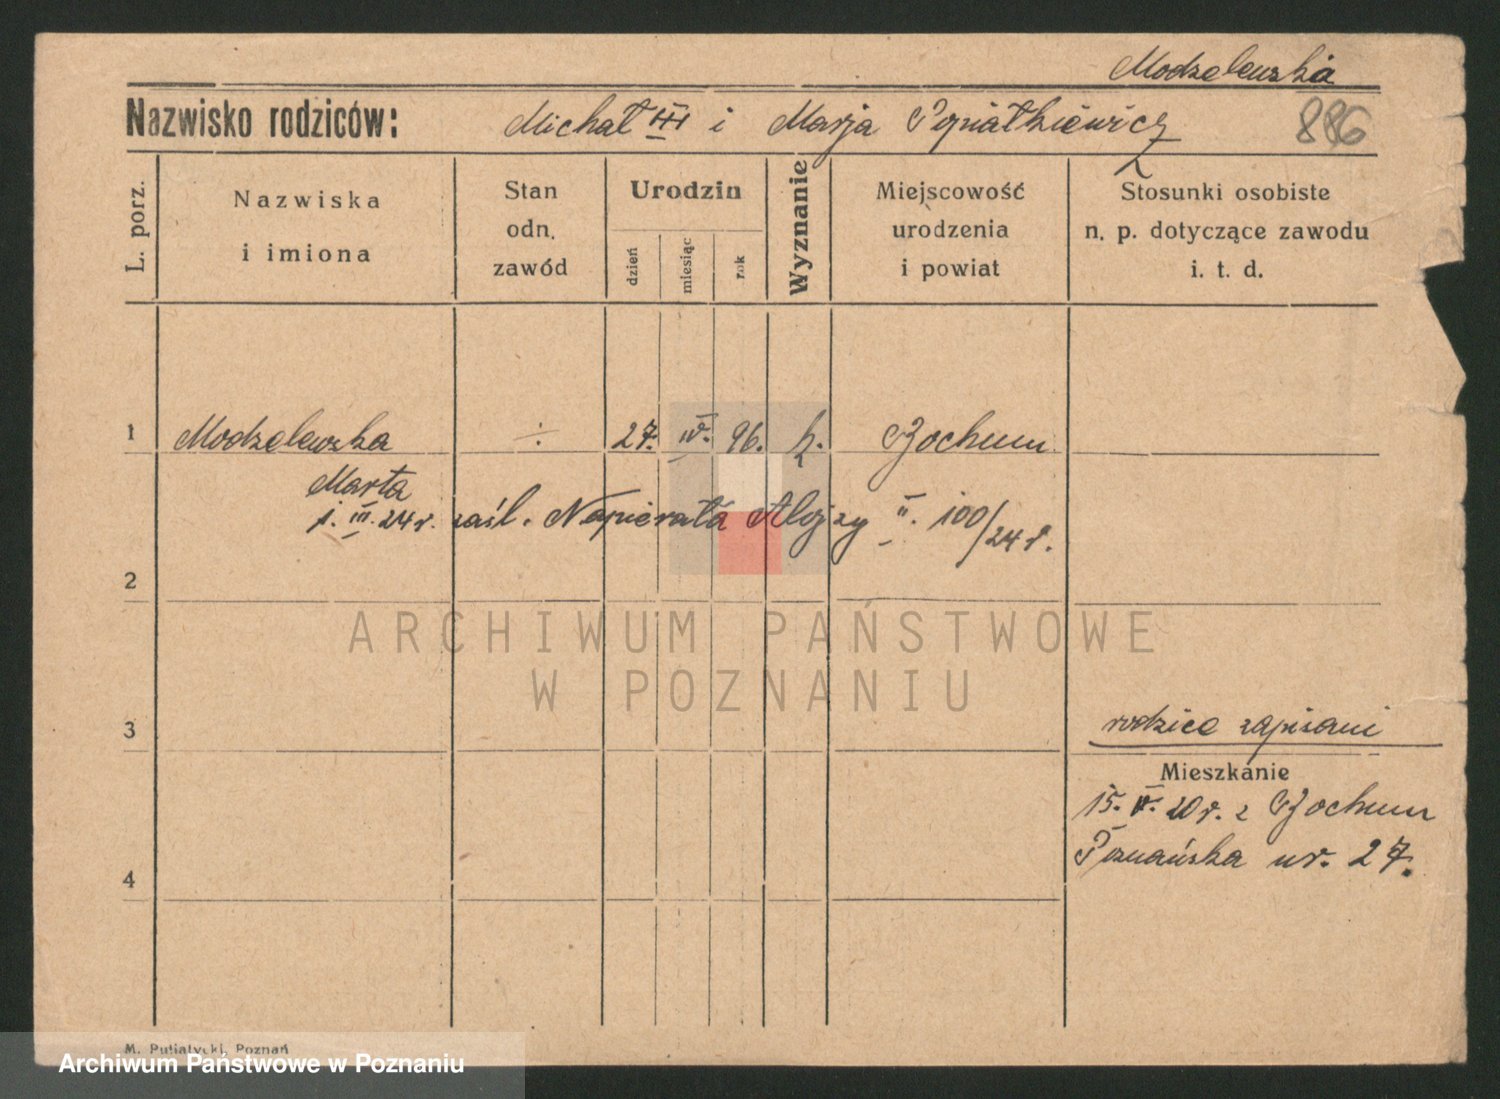 Modzelewska
Nazwisko rodziców: Michał III i Marja Popiałkiewicz
886
L. porz.
Nazwiska
i imiona
Stan
odn.
zawód
Urodzin
dzień
miesiąc
rok
Wyznanie
Miejscowość
urodzenia
i powiat
Stosunki osobiste
n. p. dotyczące zawodu
i. t. d.
1 Modzelewska ÷ 27. IV. 96. k. Bochum
Marta
1. III. 24 r. zaśl. Napierała Alojzy II. 100/24 r.
2
ARCHIWUM PAŃSTWOWE
W POZNANIU
3
rodzice zapisani
Mieszkanie
15. V. 20 r. z Bochum
Poznańska nr. 27.
4
M. Putiatycki, Poznań
Archiwum Państwowe w Poznaniu